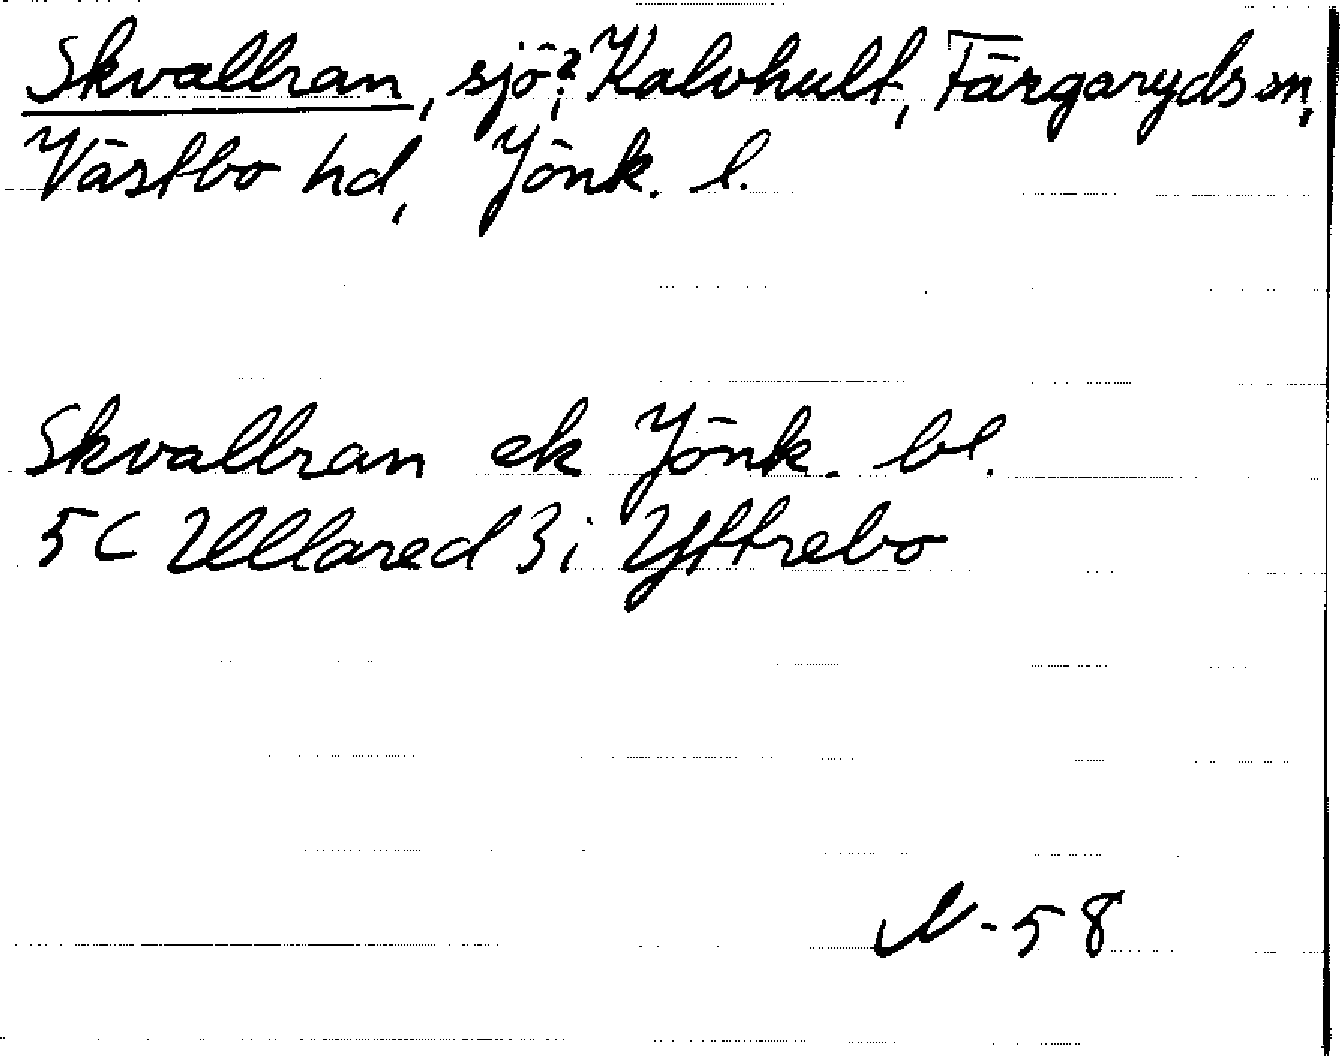 Skvallran, sjö?, Kalvhult, Färgaryds sn,
Västbo hd, Jönk. l.
Skvallran ek Jönk. bl.
5C Ullared 3i Yttrebo
N-58